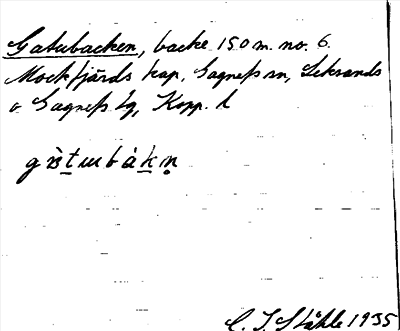 Gatubacken, backe 150 m. no. 6.
Mockfjärds kap, Gagnefs sn, Leksands
o Gagnefs tg, Kopp. l
C. I. Ståhle 1935